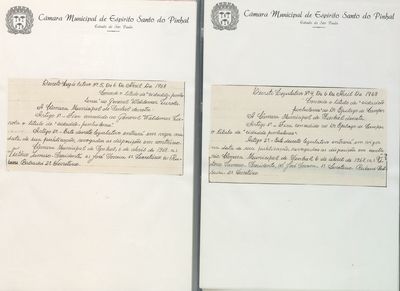 Câmara Municipal de Espírito Santo do Pinhal
Estado de São Paulo
Decreto Legislativo Nº 5, De 6 de Abril De 1968
Concede o título de "cidadão pinha-
lense" ao General Waldemar
A Câmara Municipal de Pinhal decreta
Artigo 1º - Fica concedido ao General Waldemar
o título de "cidadão pinhalense".
Artigo 2º - Este decreto legislativo entrará em vigor na
data de sua publicação, revogadas as disposições em contrário.
Câmara Municipal de Pinhal, 6 de abril de 1968
Presidente José Secretário
2º Secretário
Câmara Municipal de Espírito Santo do Pinhal
Estado de São Paulo
Decreto Legislativo Nº 4, De 6 de Abril De 1968
Concede o título de "cidadão
pinhalense" ao Dr Epitácio de Campos
A Câmara Municipal de Pinhal decreta
Artigo 1º - Fica concedido ao Dr Epitácio de Campos
o título de "cidadão pinhalense".
Artigo 2º - Este decreto legislativo entrará em vigor
na data de sua publicação, revogadas as disposições em
Câmara Municipal de Pinhal, 6 de abril de 1968
Presidente José Secretário
2º Secretário